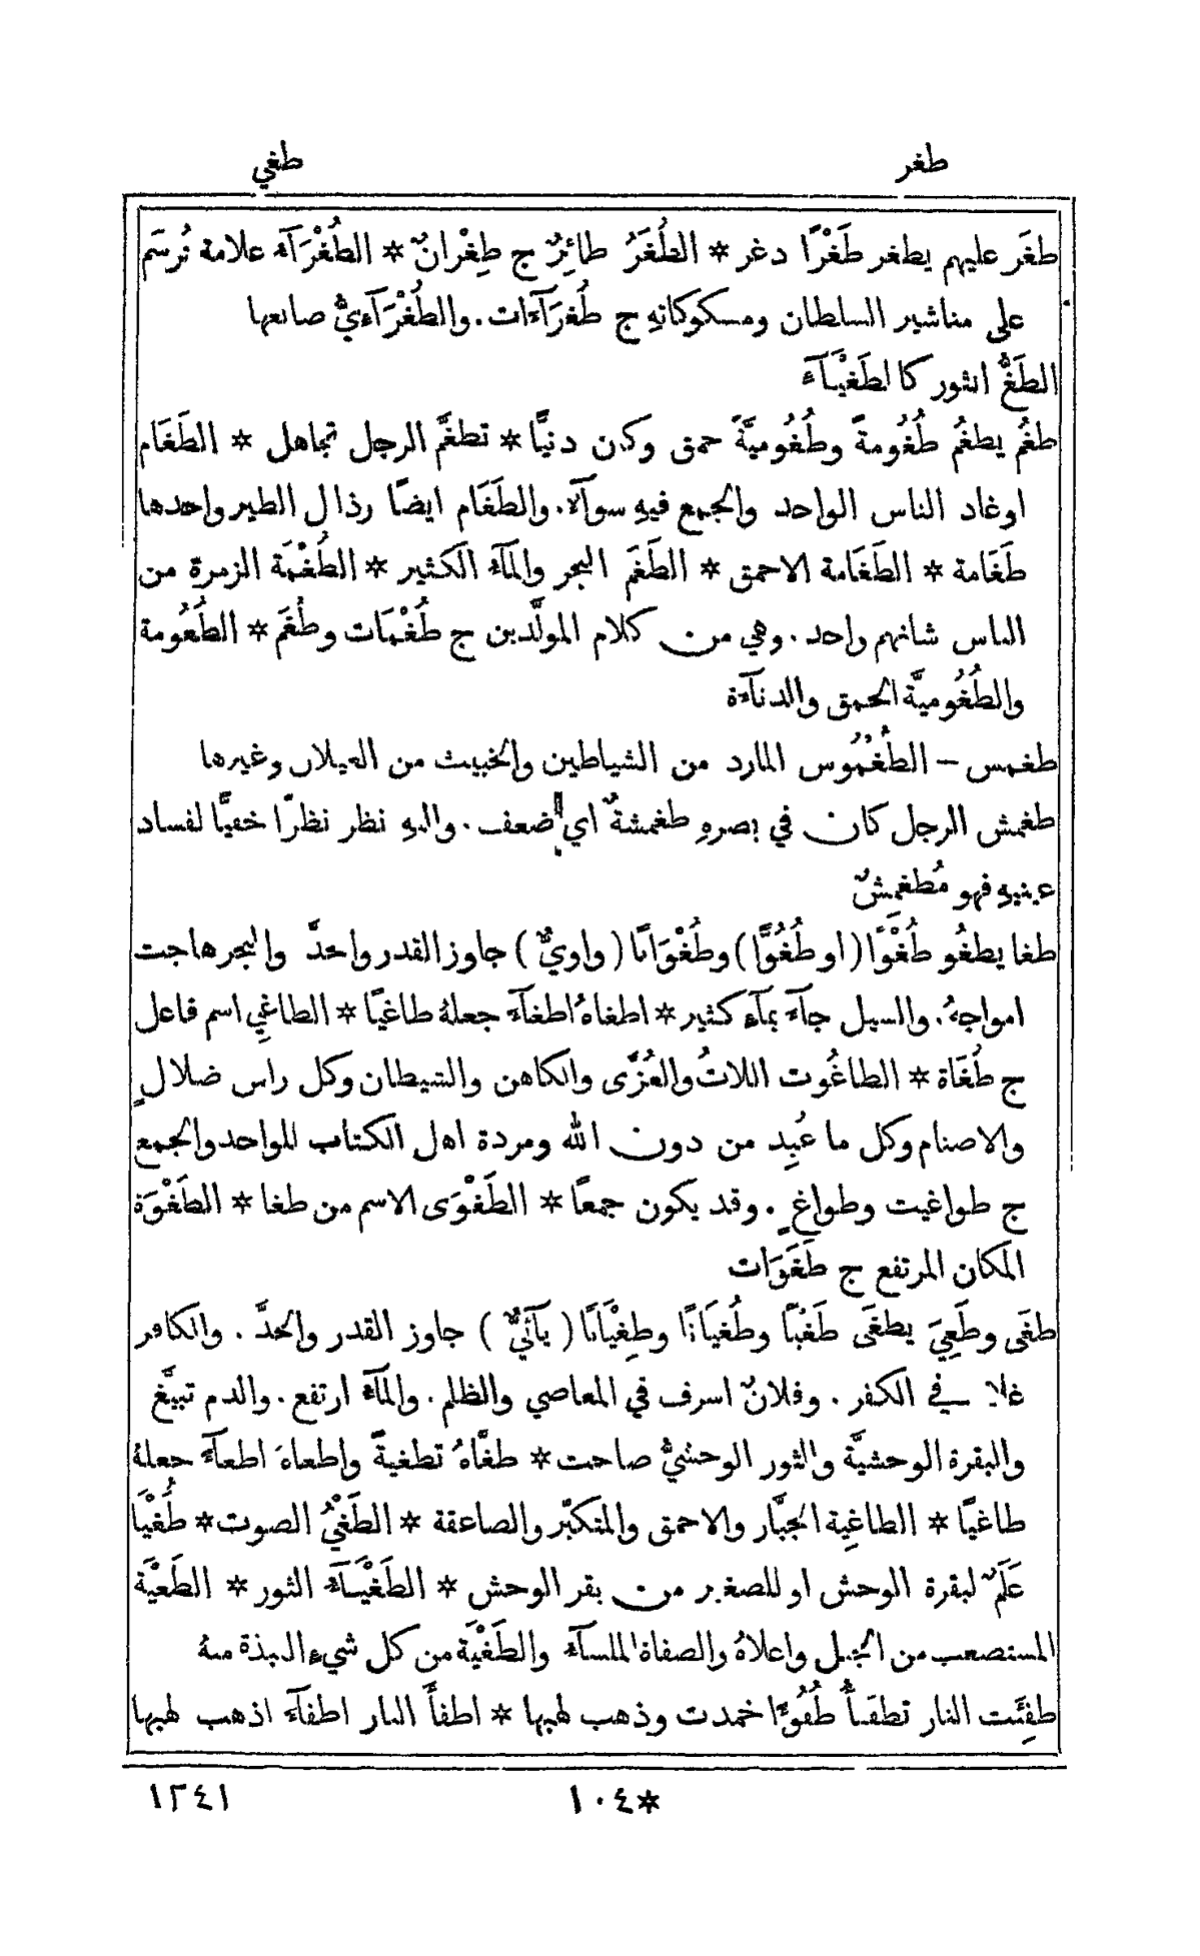 طغر
طغي
طغَر عليهم يطغر طَغْرًا دغر * الطُغَرُ طائِرٌ ج طِغْرانٌ * الطُغْرَآءُ علامة تُرسَم
على مناشير السلطان ومسكوكاتهِ ج طُغرَآءَات. والطُغْرَآءيُّ صانعها
الطَغُّ الثور كالطَغْيَآءِ
طغُم يطغُم طُغُومةً وطُغُوميَّةً حمق وكان دنيًّا * تطغَّم الرجل تجاهل * الطَغَام
اوغاد الناس الواحد والجمع فيهِ سوآءٌ. والطَغَام ايضًا رذال الطير واحدها
طَغَامة * الطَغَامة الاحمق * الطَغَم البحر والمآءُ الكثير * الطُغْمَة الزمرة من
الناس شانهم واحد. وهي من كلام المولَّدين ج طُغْمَات وطُغَم * الطُغُومة
والطُغُوميَّة الحمق والدنآءة
طغمس – الطُغْمُوس المارد من الشياطين والخبيث من الغيلان وغيرها
طغمش الرجل كان في بصرهِ طغمشةٌ اي ضعف. واليهِ نظر نظرًا خفيًّا لفساد
عينيهِ فهو مُطغمِشٌ
طغا يطغُو طُغْوًا (او طُغُوًّا) وطُغْوَانًا (واويٌّ) جاوز القدر واحدَّ والبحر هاجت
امواجهُ. والسيل جآءَ بمآءٍ كثير * اطغاهُ اطغآءً جعلهُ طاغيًا * الطاغِي اسم فاعل
ج طُغَاة * الطاغُوت اللاتُ والعُزَّى والكاهن والشيطان وكل راس ضلالٍ
والاصنام وكل ما عُبِد من دون الله ومردة اهل الكتاب للواحد والجمع
ج طواغيت وطواغٍ. وقد يكون جمعًا * الطَغْوَى الاسم من طغا * الطَغْوَة
المكان المرتفع ج طَغَوَات
طغَى وطَغِيَ يطغَى طَغْيًا وطُغيَانًا وطِغْيَانًا (يآئيٌّ) جاوز القدر والحدَّ. والكافر
غلا في الكفر. وفلانٌ اسرف في المعاصي والظلم. والمآءُ ارتفع. والدم تبيَّغ
والبقرة الوحشيَّة والثور الوحشيُّ صاحت * طغَّاهُ تطغيةً واطغاهُ اطغآءً جعلهُ
طاغيًا * الطاغِية الجبَّار والاحمق والمتكبّر والصاعقة * الطَغْيُ الصوت * طُغْيَا
عَلَمٌ لبقرة الوحش او للصغير من بقر الوحش * الطَغْيَآءُ الثور * الطَغْيَة
المستصعب من الجبل واعلاهُ والصفاة الملسآءُ والطَغْيَة من كل شيءٍ النبذة منهُ
طفِئَت النار تطفَأُ طُفُوءًا خمدت وذهب لهبها * اطفأَ النار اطفآءً اذهب لهبها
١٠٤*
١٢٤١